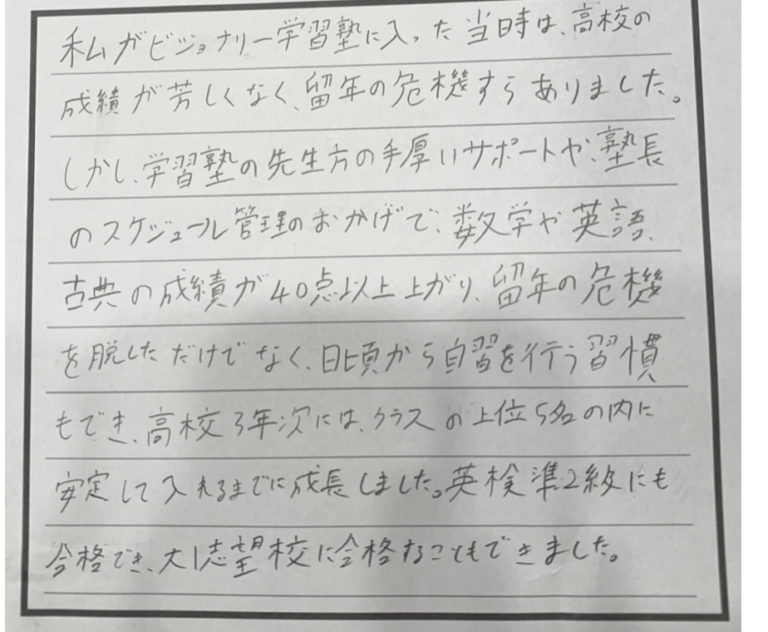 私がビジョナリー学習塾に入った当時は、高校の
成績が芳しくなく、留年の危機すらありました。
しかし、学習塾の先生方の手厚いサポートや、塾長
のスケジュール管理のおかげで、数学や英語、
古典の成績が40点以上上がり、留年の危機
を脱しただけでなく、日頃から自習を行う習慣
もでき、高校3年次には、クラスの上位5名の内に
安定して入れるまでに成長しました。英検準2級にも
合格でき、大1志望校に合格することもできました。